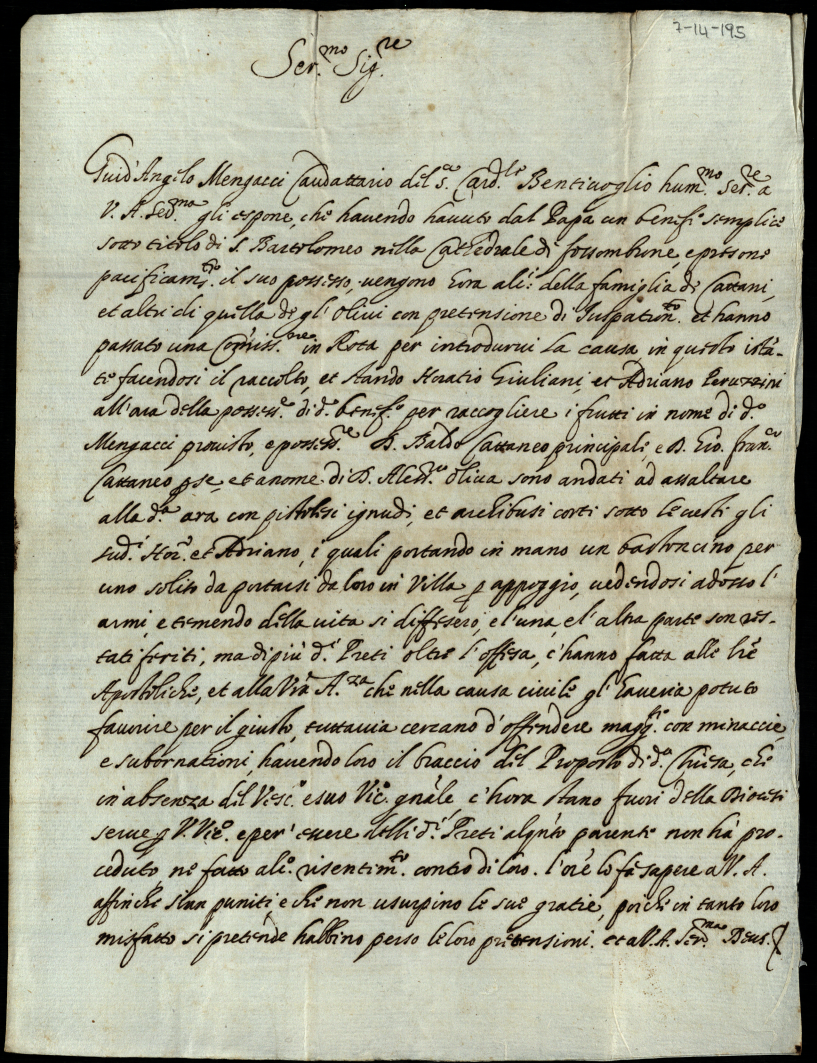 7-14-195
Ser.mo Sig.re
Guid'Angelo Mengacci Caudattario del S.r Card.le Bentivoglio hum.mo Ser.re a
V. A. Ser.ma gli espone, che havendo havuto dal Papa un benef.o semplice
sotto titolo di S. Bartolomeo nella Cathedrale di fossombrone, e presone
pacificam.te il suo possesso, vengono hora alc.i della famiglia de Cattani,
et altri di quella de gl'Olivi con pretensione di Juspatron.to et hanno
passato una Com̃iss.ne in Rota per introdurvi la causa, in questo istã-
te facendosi il raccolto, et stando Horatio Giuliani, et Adriano Peruzzini
all'ara della possess.e di d.o benef.o per raccogliere i frutti in nome di d.o
Mengacci provisto, e possess.re D. Baldo Cattaneo principali, e D. Gio. fran.co
Cattaneo p se, et a nome di D. Aless.o Oliva sono andati ad assaltare
alla d.a ara con pistolesi ignudi, et archibusi corti sotto le vesti gli
sud.i Hor.o et Adriano, i quali portando in mano un bastoncino per
uno solito da portarsi da loro in Villa p appoggio, vedendosi adosso l'
armi, e temendo della vita si diffesero, e l'una, e l'altra parte son res-
tati feriti, ma di più d.i Preti oltre l'offesa, c'hanno fatta alle lr̃e
Apostoliche, et alla Vr̃a A.za che nella causa civile gl'haveria potuto
favorire per il giusto, tuttavia cercano d'offendere magg.te con minaccie
e subornazioni, havendo loro il braccio del Proposto di d.a Chiesa, che
in absenza del Vesc.o e suo Vic.o gñale, c'hora stano fuori della Diocesi
serve p V.Vic.o e per essere delli d.i Preti alqñto parente non hà pro-
ceduto, ne fatto alc.o risentim.to contro di loro. l'or.e lo fà sapere a V. A.
affinche sian puniti, e che non usurpino le sue gratie, poiche in tanto loro
misfatto si pretende habbino perso le loro pretensioni. et a V. A. Ser.ma Deus.